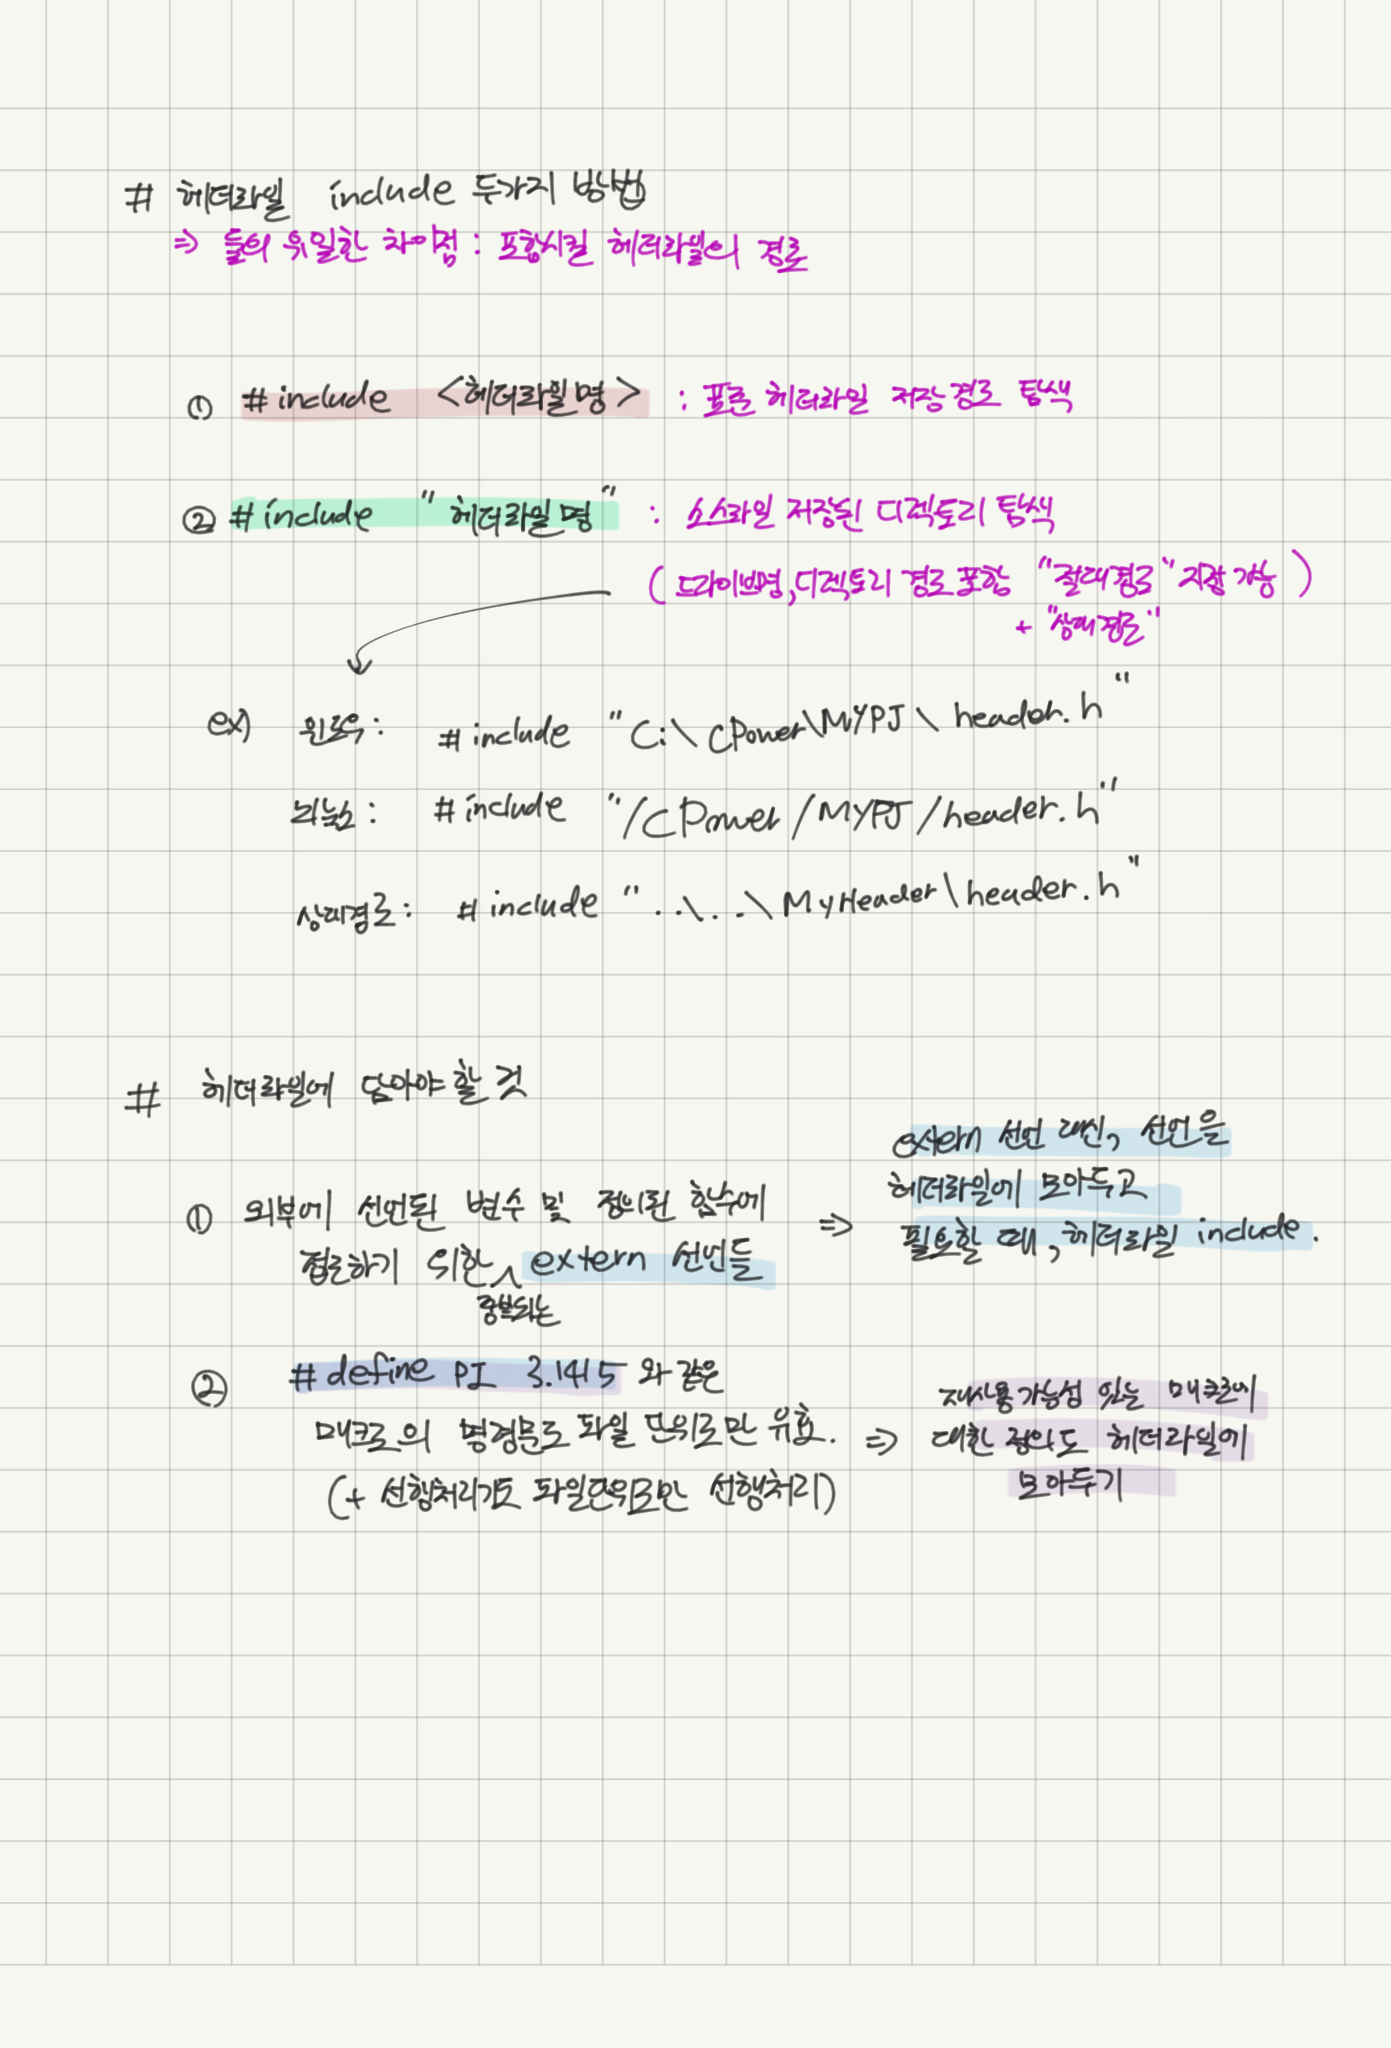 # 헤더파일 include 두가지 방법
⇒ 둘의 유일한 차이점 : 포함시킬 헤더파일의 경로
① #include <헤더파일명> : 표준 헤더파일 저장경로 탐색
② #include "헤더파일명" : 소스파일 저장된 디렉토리 탐색
(드라이브명, 디렉토리 경로 포함 "절대경로" 지정 가능)
+ "상대경로"
ex) 윈도우 : #include "C:\CPower\MYPJ\header.h"
리눅스 : #include "/CPower/MYPJ/header.h"
상대경로 : #include "..\..\MyHeader\header.h"
# 헤더파일에 담아야 할 것
① 외부에 선언된 변수 및 정의된 함수에
접근하기 위한 extern 선언들
중복되는
⇒ extern 선언 대신, 선언을
헤더파일에 모아두고
필요할 때, 헤더파일 include.
② #define PI 3.1415 와 같은
매크로의 명령문도 파일 단위로만 유효.
(+ 선행처리기도 파일단위로만 선행처리)
⇒ 재사용가능성 있는 매크로에
대한 정의도 헤더파일에
모아두기